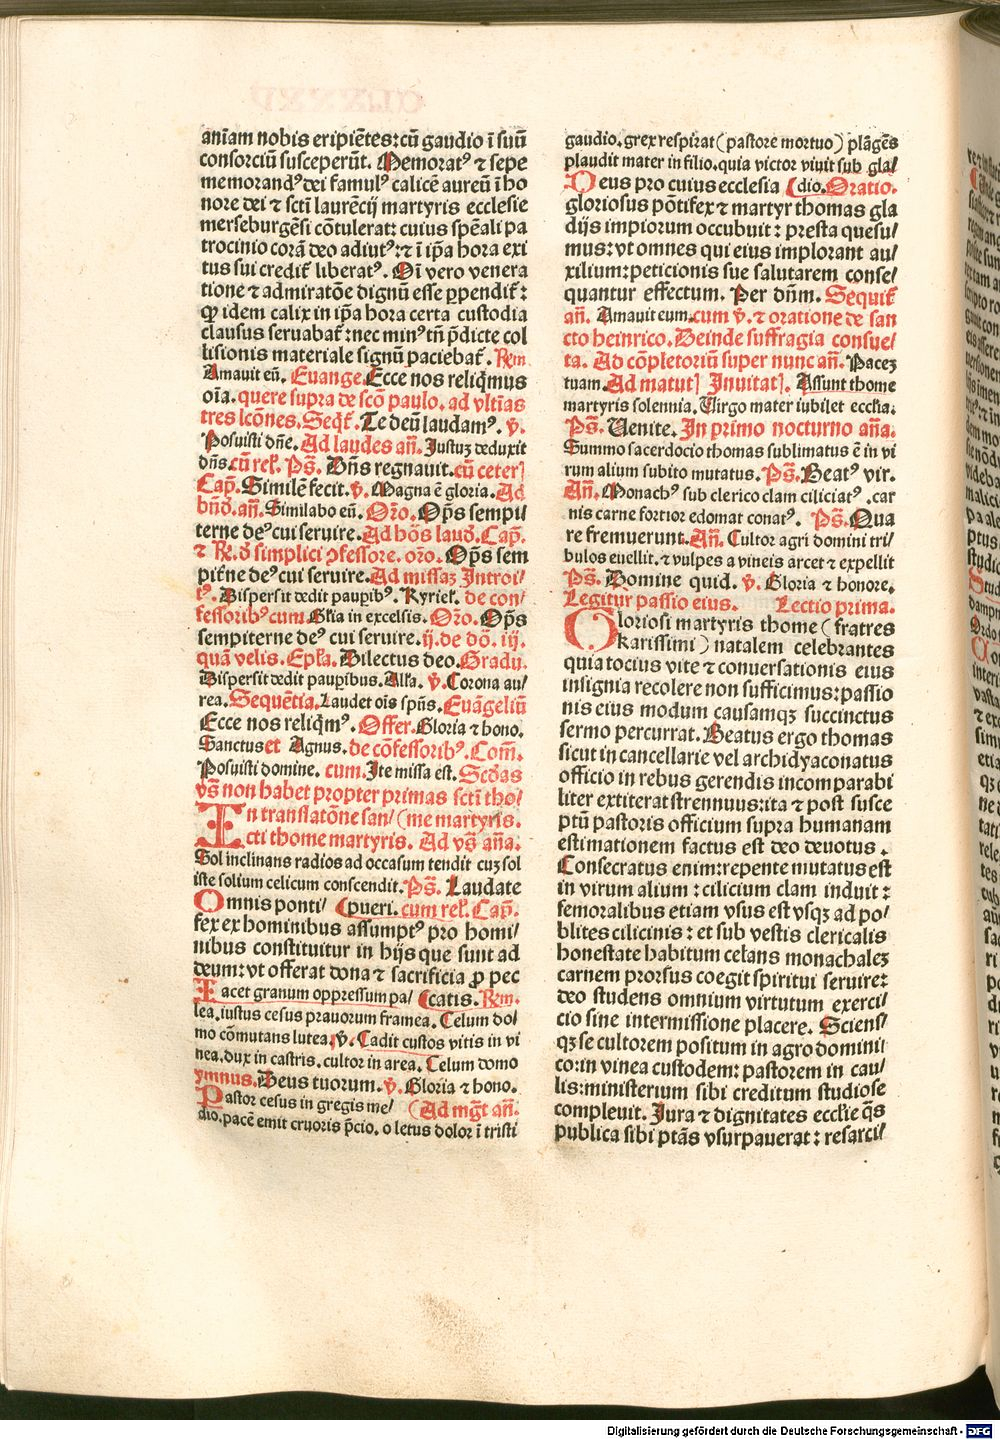 aniam nobis eripiētes: cū gaudio ī suū
consorciū susceperūt. Memoratꝰ ⁊ sepe
memorandꝰ dei famulꝰ calicē aureū ī ho
nore dei ⁊ sctī laurēcij martyris ecclesie
merseburgēsi cōtulerat: cuius spēali pa
trocinio corā deo adiutꝰ: ⁊ ī ip̄a hora exi
tus sui credit̄ liberatꝰ. Oī vero venera
tione ⁊ admiratōe dignū esse ꝓpendit̄:
ꝙ idem calix in ip̄a hora certa custodia
clausus seruabat̄: nec minꝰ tn̄ p̄dicte col
lisionis materiale signū paciebat̄. Rm̄.
Amauit eū. Euange. Ecce nos reliq̄mus
oīa. quere supra de scō paulo. ad vltīas
tres lcōnes. Seqt̄. Te deū laudamꝰ. v̄.
Posuisti dn̄e. Ad laudes an̄. Justuz deduxit
dn̄s. cū rel̄. Ps̄. Dn̄s regnauit. cū ceter̄
Cap̄. Similē fecit. v̄. Magna ē gloria. Ad
bn̄d̄. an̄. Similabo eū. Or̄o. Op̄s sempi
terne deꝰ cui seruire. Ad hōs laud̄. Cap̄.
⁊ R̄. d̄ simplici ꝯfessore. or̄o. Op̄s sem
pit̄ne deꝰ cui seruire. Ad missaz Introi⸗
tꝰ. Dispersit dedit paupib̄ꝰ. Kyriel̄. de con⸗
fessoribꝰ cum Gl̄ia in excelsis. Or̄o. Op̄s
sempiterne deꝰ cui seruire. ij. de dō. iij.
quā velis. Epl̄a. Dilectus deo. Gradu.
Dispersit dedit pauꝑibus. All̄a. v̄. Corona au⸗
rea. Sequētia. Laudet oīs spūs. Euāgeliū
Ecce nos reliq̄mꝰ. Offer. Gloria ⁊ hono.
Sanctus et Agnus. de cōfessoribꝰ. Com̄.
Posuisti domine. cum. Ite missa est. Scd̄as
vs̄ non habet propter primas sctī tho⸗
In translatōne san⸗ (me martyris.
cti thome martyris. Ad vs̄ an̄a.
Sol inclinans radios ad occasum tendit cuz sol
iste solium celicum conscendit. Ps̄. Laudate
Omnis ponti⸗ (pueri. cum rel̄. Cap̄.
fex ex hominibus assumptꝰ pro homi⸗
nibus constituitur in hijs que sunt ad
deum: vt offerat dona ⁊ sacrificia ꝓ pec
Iacet granum oppressum pa⸗ (catis. Rm̄.
lea, iustus cesus prauorum framea. Celum do⸗
mo cōmutans lutea. v̄. Cadit custos vitis in vi
nea, dux in castris, cultor in area. Celum domo
ymnus. Deus tuorum. v̄. Gloria ⁊ hono.
Pastor cesus in gregis me⸗ (Ad mgt̄ an̄.
dio, pacē emit cruoris p̄cio. o letus dolor ī tristi
gaudio. grex respirat (pastore mortuo) plāgēs
plaudit mater in filio. quia victor viuit sub gla⸗
Deus pro cuius ecclesia (dio. Oratio.
gloriosus pōtifex ⁊ martyr thomas gla
dijs impiorum occubuit: presta quesu⸗
mus: vt omnes qui eius implorant au⸗
xilium: peticionis sue salutarem conse⸗
quantur effectum. Per dn̄m. Sequit̄
an̄. Amauit eum. cum v̄. ⁊ oratione de san
cto heinrico. Deinde suffragia consue⸗
ta. Ad cōpletoriū super nunc an̄. Pacez
tuam. Ad matut̄ Inuitat̄. Assunt thome
martyris solennia. Virgo mater iubilet ecclīa.
Ps̄. Uenite. In primo nocturno an̄a.
Summo sacerdocio thomas sublimatus ē in vi
rum alium subito mutatus. Ps̄. Beatꝰ vir.
An̄. Monachꝰ sub clerico clam ciliciatꝰ. car
nis carne fortior edomat conatꝰ. Ps̄. Qua
re fremuerunt. An̄. Cultor agri domini tri⸗
bulos euellit. ⁊ vulpes a vineis arcet ⁊ expellit
Ps̄. Domine quid. v̄. Gloria ⁊ honore.
Legitur passio eius. Lectio prima.
Gloriosi martyris thome (fratres
karissimi) natalem celebrantes
quia tocius vite ⁊ conuersationis eius
insignia recolere non sufficimus: passio
nis eius modum causamqꝫ succinctus
sermo percurrat. Beatus ergo thomas
sicut in cancellarie vel archidyaconatus
officio in rebus gerendis incomparabi
liter extiterat strennuus: ita ⁊ post susce
ptū pastoris officium supra humanam
estimationem factus est deo deuotus.
Consecratus enim: repente mutatus est
in virum alium: cilicium clam induit:
femoralibus etiam vsus est vsqꝫ ad po⸗
blites cilicinis: et sub vestis clericalis
honestate habitum celans monachalez
carnem prorsus coegit spiritui seruire:
deo studens omnium virtutum exerci⸗
cio sine intermissione placere. Sciens⸗
qꝫ se cultorem positum in agro domini
co: in vinea custodem: pastorem in cau⸗
lis: ministerium sibi creditum studiose
compleuit. Jura ⁊ dignitates eccl̄ie q̄s
publica sibi ptās vsurpauerat: resarci⸗
Digitalisierung gefördert durch die Deutsche Forschungsgemeinschaft - DFG